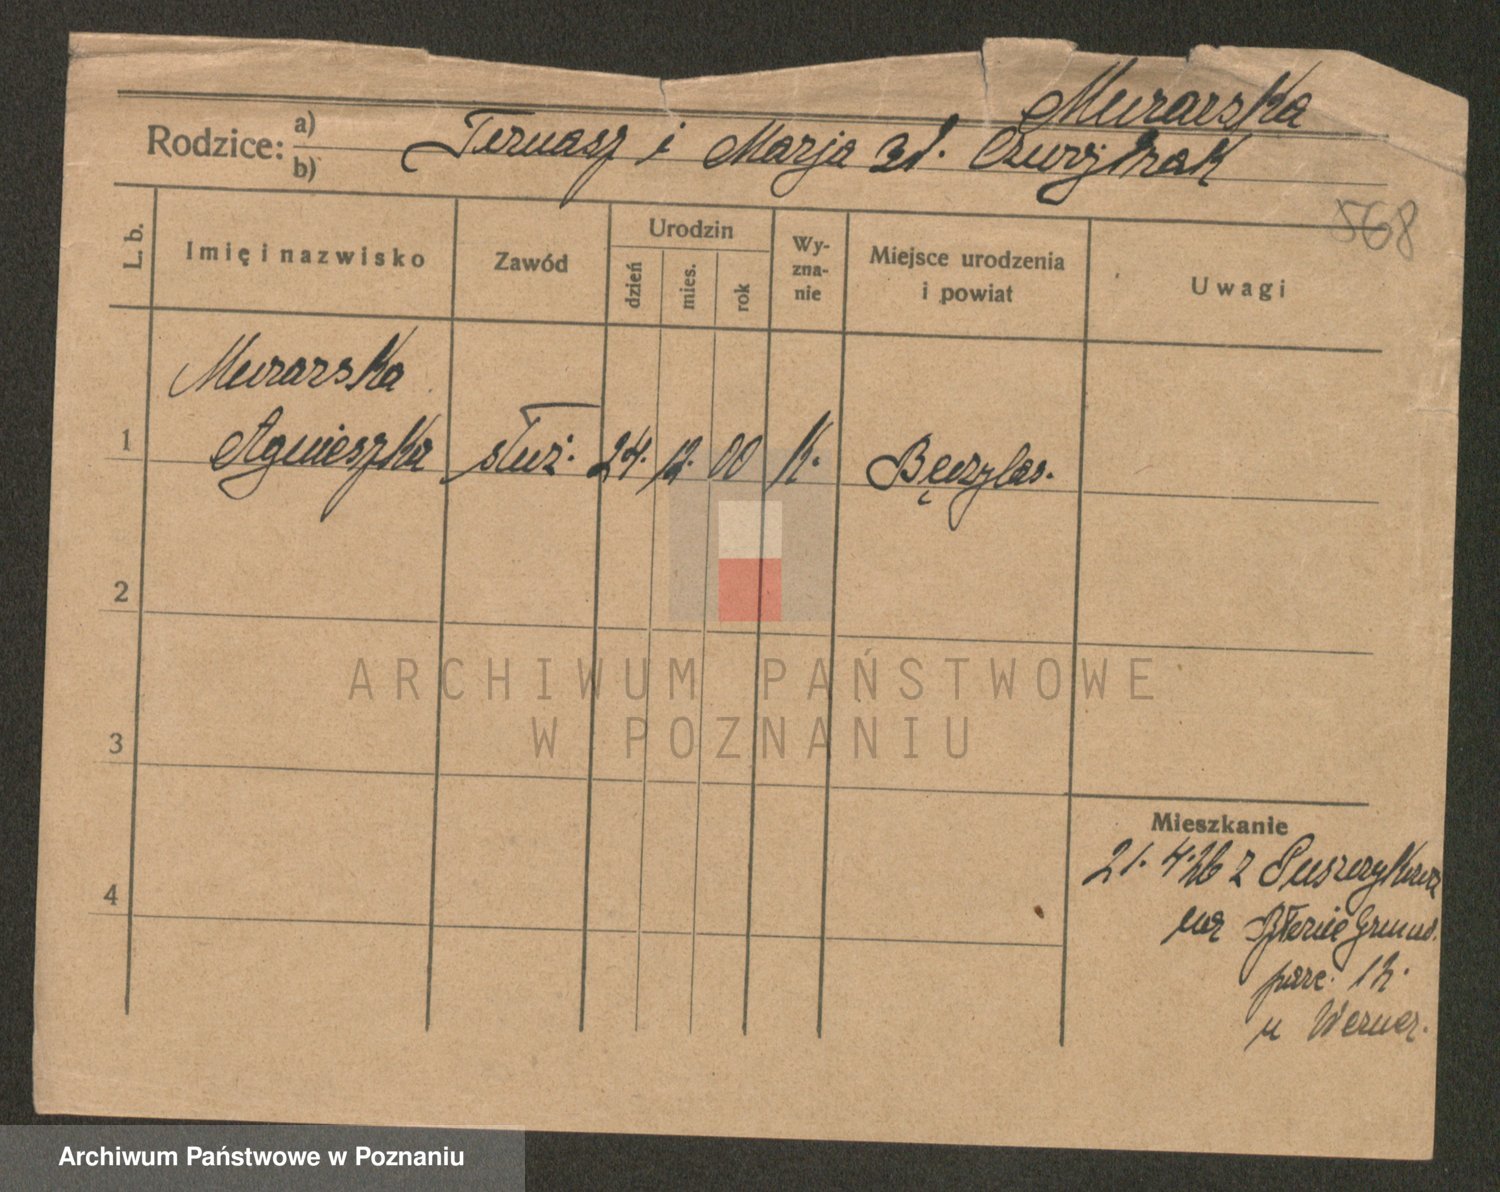 Murarska
Rodzice: a) b) Tomasz i Marja zd.
568
L. b.
Imię i nazwisko
Zawód
Urodzin
dzień
mies.
rok
Wy-
zna-
nie
Miejsce urodzenia
i powiat
Uwagi
Murarska
1 Agnieszka służ. 24. 12. 00 K.
2
3
4
ARCHIWUM PAŃSTWOWE
W POZNANIU
Mieszkanie
21. 4. 26 z Puszczykowa
na
parc.
u Werner.
Archiwum Państwowe w Poznaniu